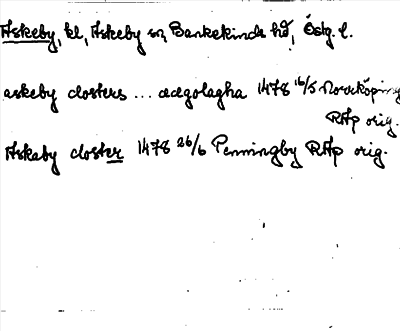 Askeby, kl, Askeby sn, Bankekinds hd, Östg. l.
askeby closters ... ædgolagha 1478 16/5 Norrköping
RAp orig.
Askaby closter 1478 26/6 Penningby RAp orig.